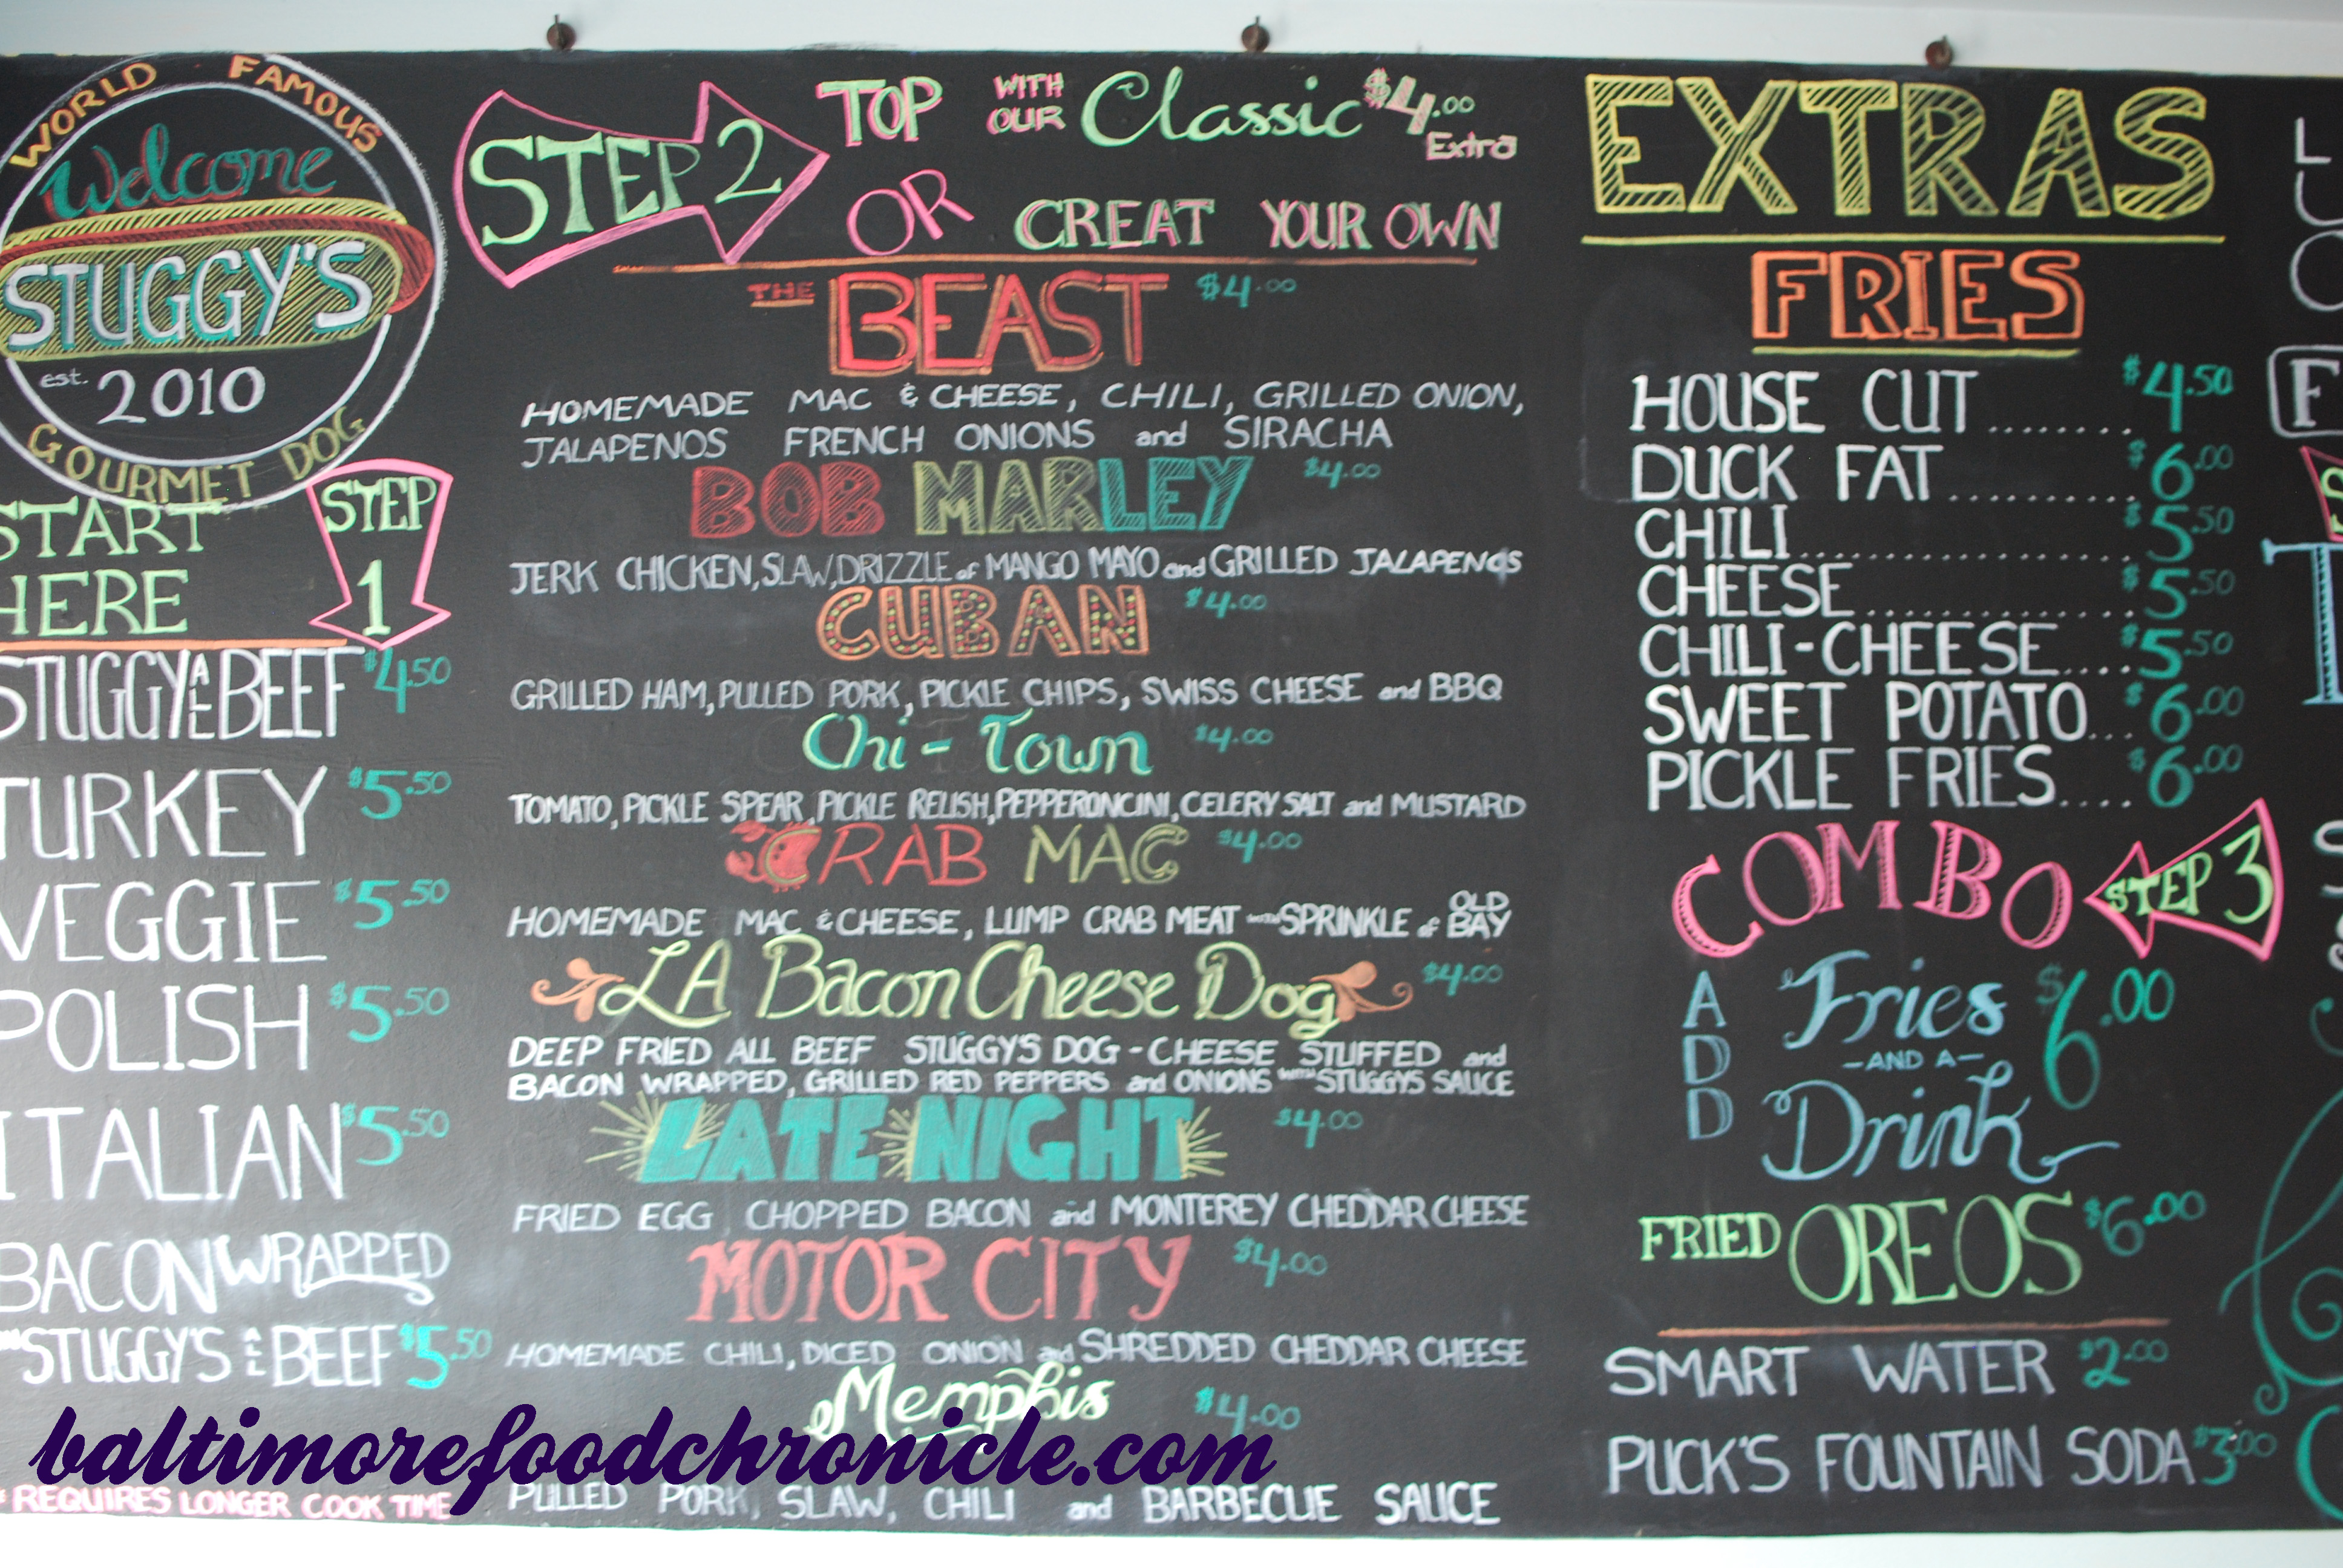 WORLD FAMOUS
Welcome
STUGGY'S
est. 2010
GOURMET DOG
START
HERE
STEP
1
STUGGY ALL BEEF $4.50
TURKEY $5.50
VEGGIE $5.50
POLISH $5.50
ITALIAN $5.50
BACON WRAPPED
STUGGY'S ALL BEEF $5.50
* REQUIRES LONGER COOK TIME
STEP 2
TOP WITH OUR Classic $4.00 Extra
OR CREAT YOUR OWN
THE BEAST $4.00
HOMEMADE MAC & CHEESE, CHILI, GRILLED ONION,
JALAPENOS FRENCH ONIONS and SIRACHA
BOB MARLEY $4.00
JERK CHICKEN, SLAW, DRIZZLE of MANGO MAYO and GRILLED JALAPENOS
CUBAN $4.00
GRILLED HAM, PULLED PORK, PICKLE CHIPS, SWISS CHEESE and BBQ
Chi-Town $4.00
TOMATO, PICKLE SPEAR, PICKLE RELISH, PEPPERONCINI, CELERY SALT and MUSTARD
CRAB MAC $4.00
HOMEMADE MAC & CHEESE, LUMP CRAB MEAT with SPRINKLE of OLD BAY
LA Bacon Cheese Dog $4.00
DEEP FRIED ALL BEEF STUGGY'S DOG - CHEESE STUFFED and
BACON WRAPPED, GRILLED RED PEPPERS and ONIONS WITH STUGGYS SAUCE
LATE NIGHT $4.00
FRIED EGG, CHOPPED BACON and MONTEREY CHEDDAR CHEESE
MOTOR CITY $4.00
HOMEMADE CHILI, DICED ONION and SHREDDED CHEDDAR CHEESE
Memphis $4.00
PULLED PORK, SLAW, CHILI and BARBECUE SAUCE
EXTRAS
FRIES
HOUSE CUT........ $4.50
DUCK FAT.......... $6.00
CHILI.................. $5.50
CHEESE............... $5.50
CHILI-CHEESE.... $5.50
SWEET POTATO... $6.00
PICKLE FRIES.... $6.00
COMBO STEP 3
ADD Fries $6.00
-AND A-
Drink
FRIED OREOS $6.00
SMART WATER $2.00
PUCK'S FOUNTAIN SODA $3.00
baltimorefoodchronicle.com